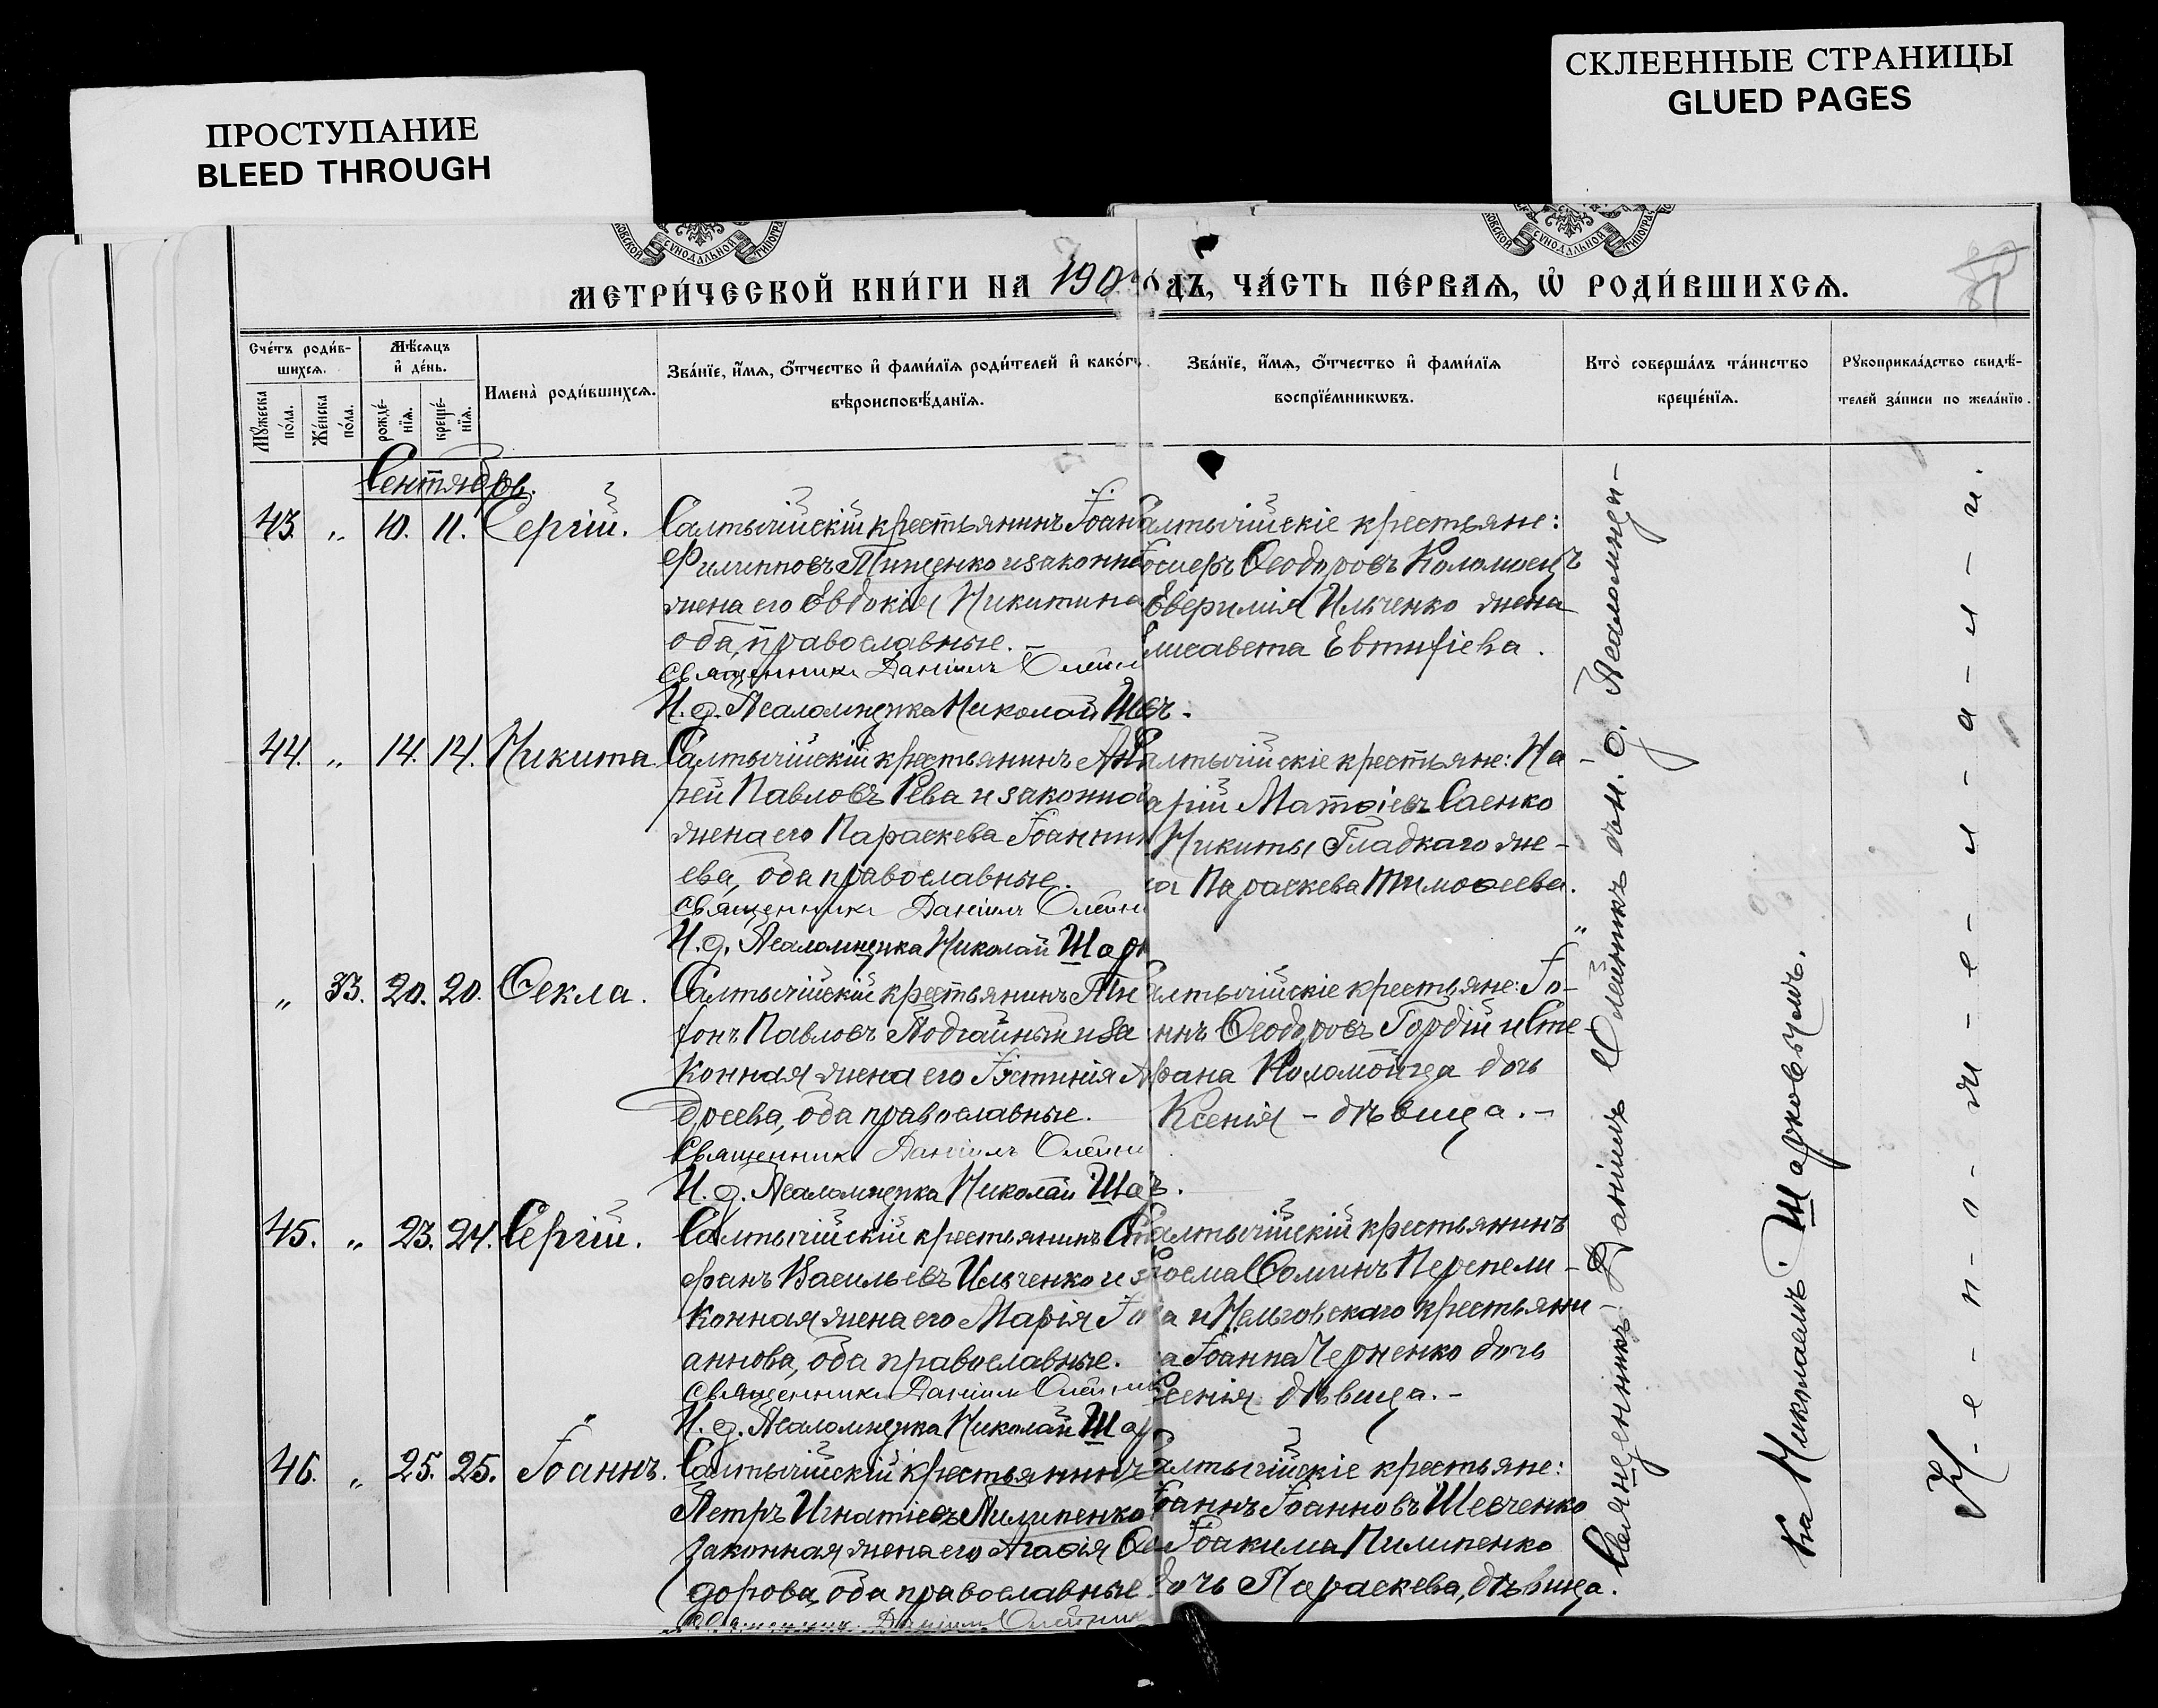 ПРОСТУПАНИЕ
BLEED THROUGH
СКЛЕЕННЫЕ СТРАНИЦЫ
GLUED PAGES
МЕТРИ́ЧЕСКОЙ КНИ́ГИ НА 190
ДЪ, ЧА́СТЬ ПЕ́РВАѦ, Ѡ҆ РОДИ́ВШИХСѦ.
Сче́тъ роди́в-
шихсѧ.
Мѣ́сѧцъ
и҆ де́нь.
Мꙋ́жеска
по́ла.
Же́нска
по́ла.
рожде́-
нїѧ.
креще́-
нїѧ.
Имена̀ роди́вшихсѧ.
Зва́нїе, и҆́мѧ, ѻ҆́тчество и҆ фами́лїѧ роди́телей и҆ како́гѡ
вѣроисповѣ́данїѧ.
Зва́нїе, и҆́мѧ, ѻ҆́тчество и҆ фами́лїѧ
воспрїе́мникѡвъ.
Кто̀ соверша́лъ та́инство
креще́нїѧ.
Рꙋкоприкла́дство свидѣ́-
телей за́писи по жела́нїю.
Сентябрь.
43. „ 10. 11. Сергій.
Салтычійскій крестьянинъ Іоан
Филипповъ Тищенко и законн
жена его Евдокія Никитина
оба православные. –
Священникъ Даніилъ Олейни
И. д. Псаломщика Николай Ша
алтычійскіе крестьяне:
Ѳеодоровъ Коломоецъ
Ильченко жена
лисавета Евтифіева.
44. „ 14. 14. Никита
Салтычійскій крестьянинъ Ан
рей Павловъ Рева и законна
жена его Параскева Іоанни
ева, оба православные.
Священникъ Даніилъ Олейни
И. д. Псаломщика Николай Шарк
алтычійскіе крестьяне: На
арій Матѳіевъ Саенко
Никиты Гладкаго же-
на Параскева Тимоѳеева.
„ 33. 20. 20. Ѳекла.
Салтычійскій крестьянинъ
фонъ Павловъ Подгайный и за
конная жена его Іустинія Ан
дреева, оба православные.
Священникъ Даніилъ Олейни
И. д. Псаломщика Николай Шар
алтычійскіе крестьяне: Іо-
ннъ Ѳеодоровъ Гордій и Сте-
фана Коломойца дочь
Ксенія – дѣвица. –
45. „ 23. 24. Сергій.
Салтычійскій крестьянинъ Сте
фанъ Васильевъ Ильченко и за
конная жена его Марія Іо
аннова, оба православные.
Священникъ Даніилъ Олейник
И. д. Псаломщика Николай Шар
алтычійскій крестьянинъ
Ѳоминъ Перепели-
а и Нельговскаго крестьяни
а Іоанна Черненко дочь
сенія дѣвица. –
46. „ 25. 25. Іоаннъ.
Салтычійскій крестьянинъ
Петръ Игнатіевъ Пилипенко
законная жена его Агаѳія Ѳео
дорова, оба православные
Священникъ Даніилъ Олейник
алтычійскіе крестьяне:
Іоаннъ Іоанновъ Шевченко
Іоакима Пилипенко
дочь Параскева, дѣвица.
Священникъ Даніилъ Олейникъ съ И. д. Псаломщи-
ка Николаемъ Шарковымъ.
Н-е-п-о-ж-е-л-а-л-и.